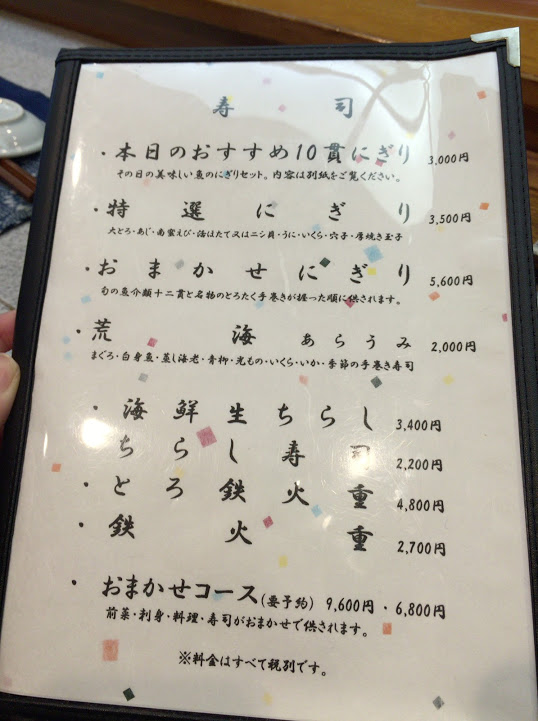 寿司
・本日のおすすめ10貫にぎり 3,000円
その日の美味しい魚のにぎりセット。内容は別紙をご覧ください。
・特選にぎり 3,500円
大とろ・あじ・南蛮えび・活ほたて又はニシ貝・うに・いくら・穴子・厚焼き玉子
・おまかせにぎり 5,600円
旬の魚介類十二貫と名物のとろたく手巻きが握った順に供されます。
・荒海 あらうみ 2,000円
まぐろ・白身魚・蒸し海老・青柳・光もの・いくら・いか・季節の手巻き寿司
・海鮮生ちらし 3,400円
ちらし寿司 2,200円
・とろ鉄火重 4,800円
・鉄火重 2,700円
・おまかせコース(要予約) 9,600円・6,800円
前菜・刺身・料理・寿司がおまかせで供されます。
※料金はすべて税別です。